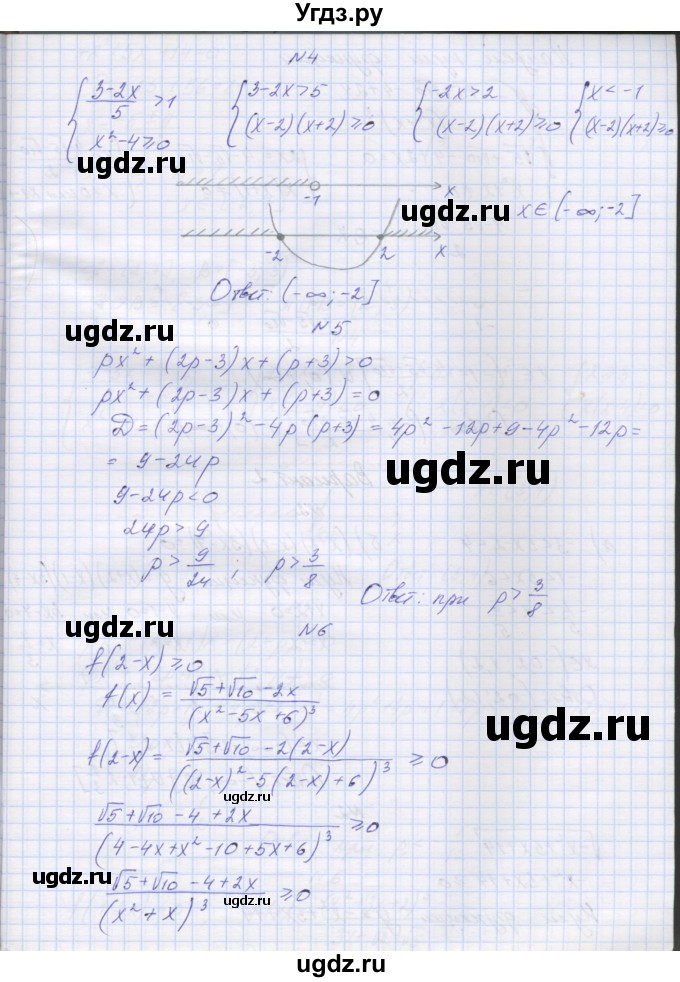 Угдз.ру
N4
{ (3-2x)/5 > 1 { 3-2x>5 { -2x>2 { x<-1
{ x²-4≥0 { (x-2)(x+2)≥0 { (x-2)(x+2)≥0 { (x-2)(x+2)≥0
-1 x
ugdz.ru x∈(-∞;-2]
-2 2 x
ugdz.ru
Ответ: (-∞;-2]
N5
ugdz.ru
px²+(2p-3)x+(p+3)>0
px²+(2p-3)x+(p+3)=0
D=(2p-3)²-4p(p+3)=4p²-12p+9-4p²-12p=
= 9-24p
ugdz.ru
9-24p<0
24p>9
p>9/24; p>3/8
Ответ: при p>3/8
ugdz.ru
N6
f(2-x)≥0
f(x) = (√5+√10-2x)/(x²-5x+6)³
ugdz.ru
f(2-x)= (√5+√10-2(2-x))/((2-x)²-5(2-x)+6)³ ≥0
ugdz.ru
(√5+√10-4+2x)/(4-4x+x²-10+5x+6)³ ≥0
ugdz.ru
(√5+√10-4+2x)/(x²+x)³ ≥0
ugdz.ru
ugdz.ru
ugdz.ru